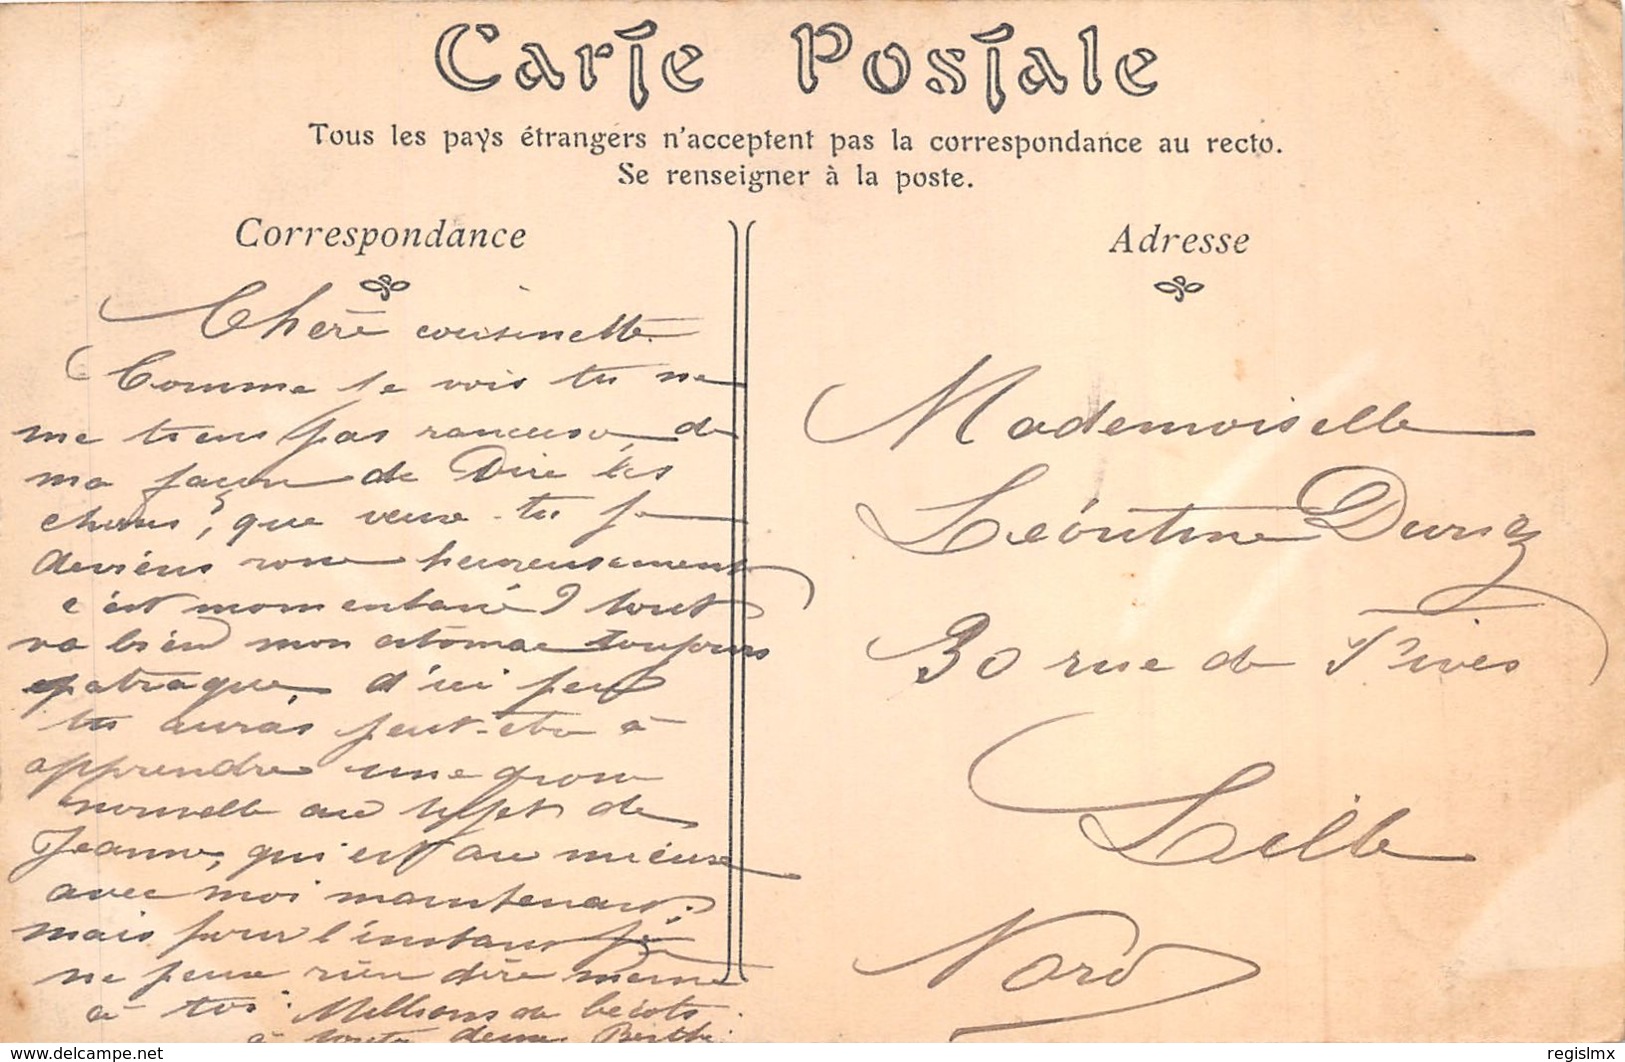 Carte Postale
Tous les pays étrangers n'acceptent pas la correspondance au recto.
Se renseigner à la poste.
Correspondance
Chère cousinette
Comme je vois tu ne
me tiens pas rancune, de
ma façon de Dire les
choses, que veux-tu je
deviens rosse heureusement
c'est momentané, tout
va bien mon estomac toujours
patraque, d'ici peu
tu auras peut-être à
apprendre une grosse
nouvelle au sujet de
Jeanne, qui est au mieux
avec moi maintenant;
mais pour l'instant je
ne peux rien dire même
à toi. Millions de bécots
à toute deux Berthe
Adresse
Mademoiselle
Léontine Duriez
30 rue de Fives
Lille
Nord
www.delcampe.net
regislmx